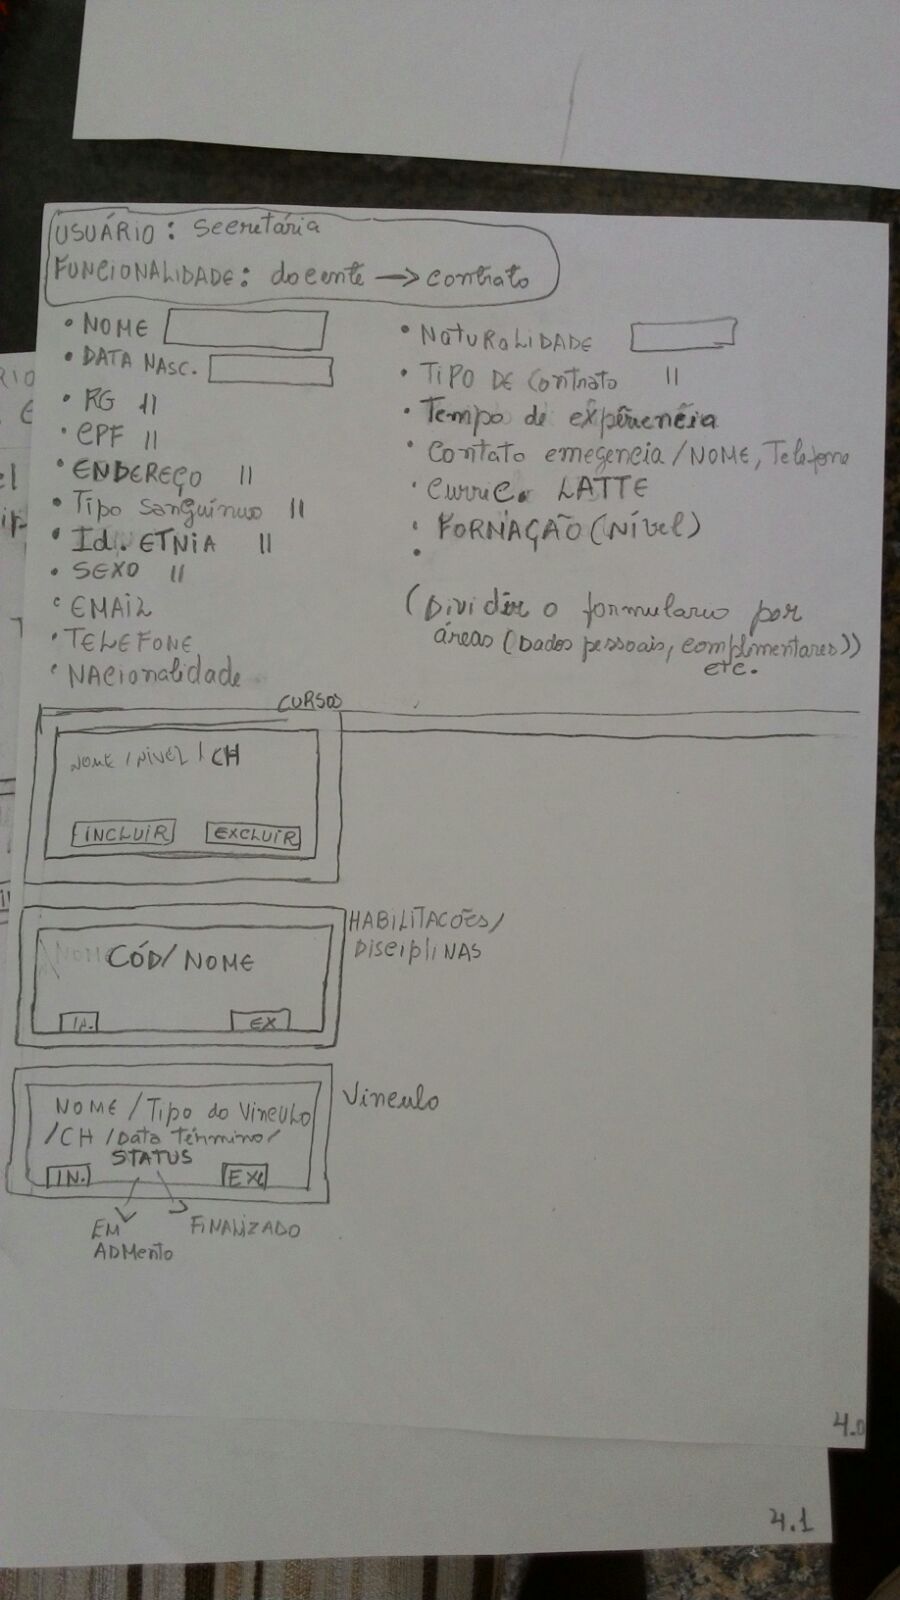 USUÁRIO: Secretária
FUNCIONALIDADE: docente → contrato
• NOME
• DATA NASC.
• RG 11
• CPF 11
• ENDEREÇO 11
• Tipo Sanguínuo 11
• Id. ETNIA 11
• SEXO 11
• EMAIL
• TELEFONE
• NAcionalidade
• NATURALIDADE
• TIPO DE Contrato 11
• Tempo de expêriencia
• Contato emegencia/NOME, Telefone
• Curric. LATTE
• FORMAÇÃO (Nível)
•
(Dividir o formulario por
áreas (Dados pessoais, complimentares))
etc.
CURSOS
NOME / NIVEL / CH
INCLUIR EXCLUIR
HABILITACÕES/
DISCIPLINAS
NOME CÓD/ NOME
IN. EX
Vinculo
NOME / Tipo do Vinculo
/ CH / Data término /
STATUS
IN. EXC
EM
ADMento
FINALIZADO
4.0
4.1